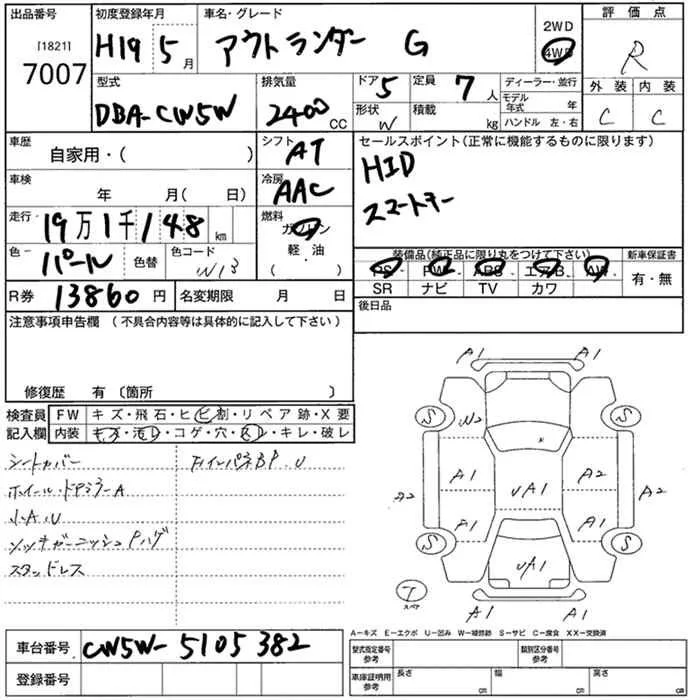 出品番号 初度登録年月 車名・グレード 2WD 評価点
[1821] H19 5月 アウトランダー G 4WD R
7007
型式 排気量 ドア 5 定員 7人 ディーラー・並行 外装 内装
DBA-CW5W 2400 CC 形状 W 積載 kg モデル年式 年 C C
ハンドル 左・右
車歴 自家用・( ) シフト AT セールスポイント(正常に機能するものに限ります)
車検 年 月( 日) 冷房 AAC HID
走行 19万1千148 km 燃料 ガソリン スマートキー
軽・油
( )
色 パール 色替 色コード W13 装備品(純正品に限り丸をつけて下さい) 新車保証書
PS PW ABS エアB AW 有・無
SR ナビ TV カワ
R券 13860円 名変期限 月 日 後日品
注意事項申告欄 (不具合内容等は具体的に記入して下さい)
修復歴 有 〔箇所 〕
検査員 FW キズ・飛石・ヒビ割・リペア跡・X要
記入欄 内装 キズ・汚レ・コゲ・穴・スレ・キレ・破レ
シートカバー
ホイール・ドアミラーA
小A.U
スタッドレス
A1 A1
S W2 S
A1 A2
A2 UA1 A2
A1 A1
S UA1 S
T スペア
A1 A1
A－キズ E－エクボ U－凹み W－補修跡 S－サビ C－腐食 XX－交換済
車台番号 CW5W-5105382
登録番号
型式指定番号 参考 類別区分番号 参考
車庫証明用 参考 長さ cm 幅 cm 高さ cm